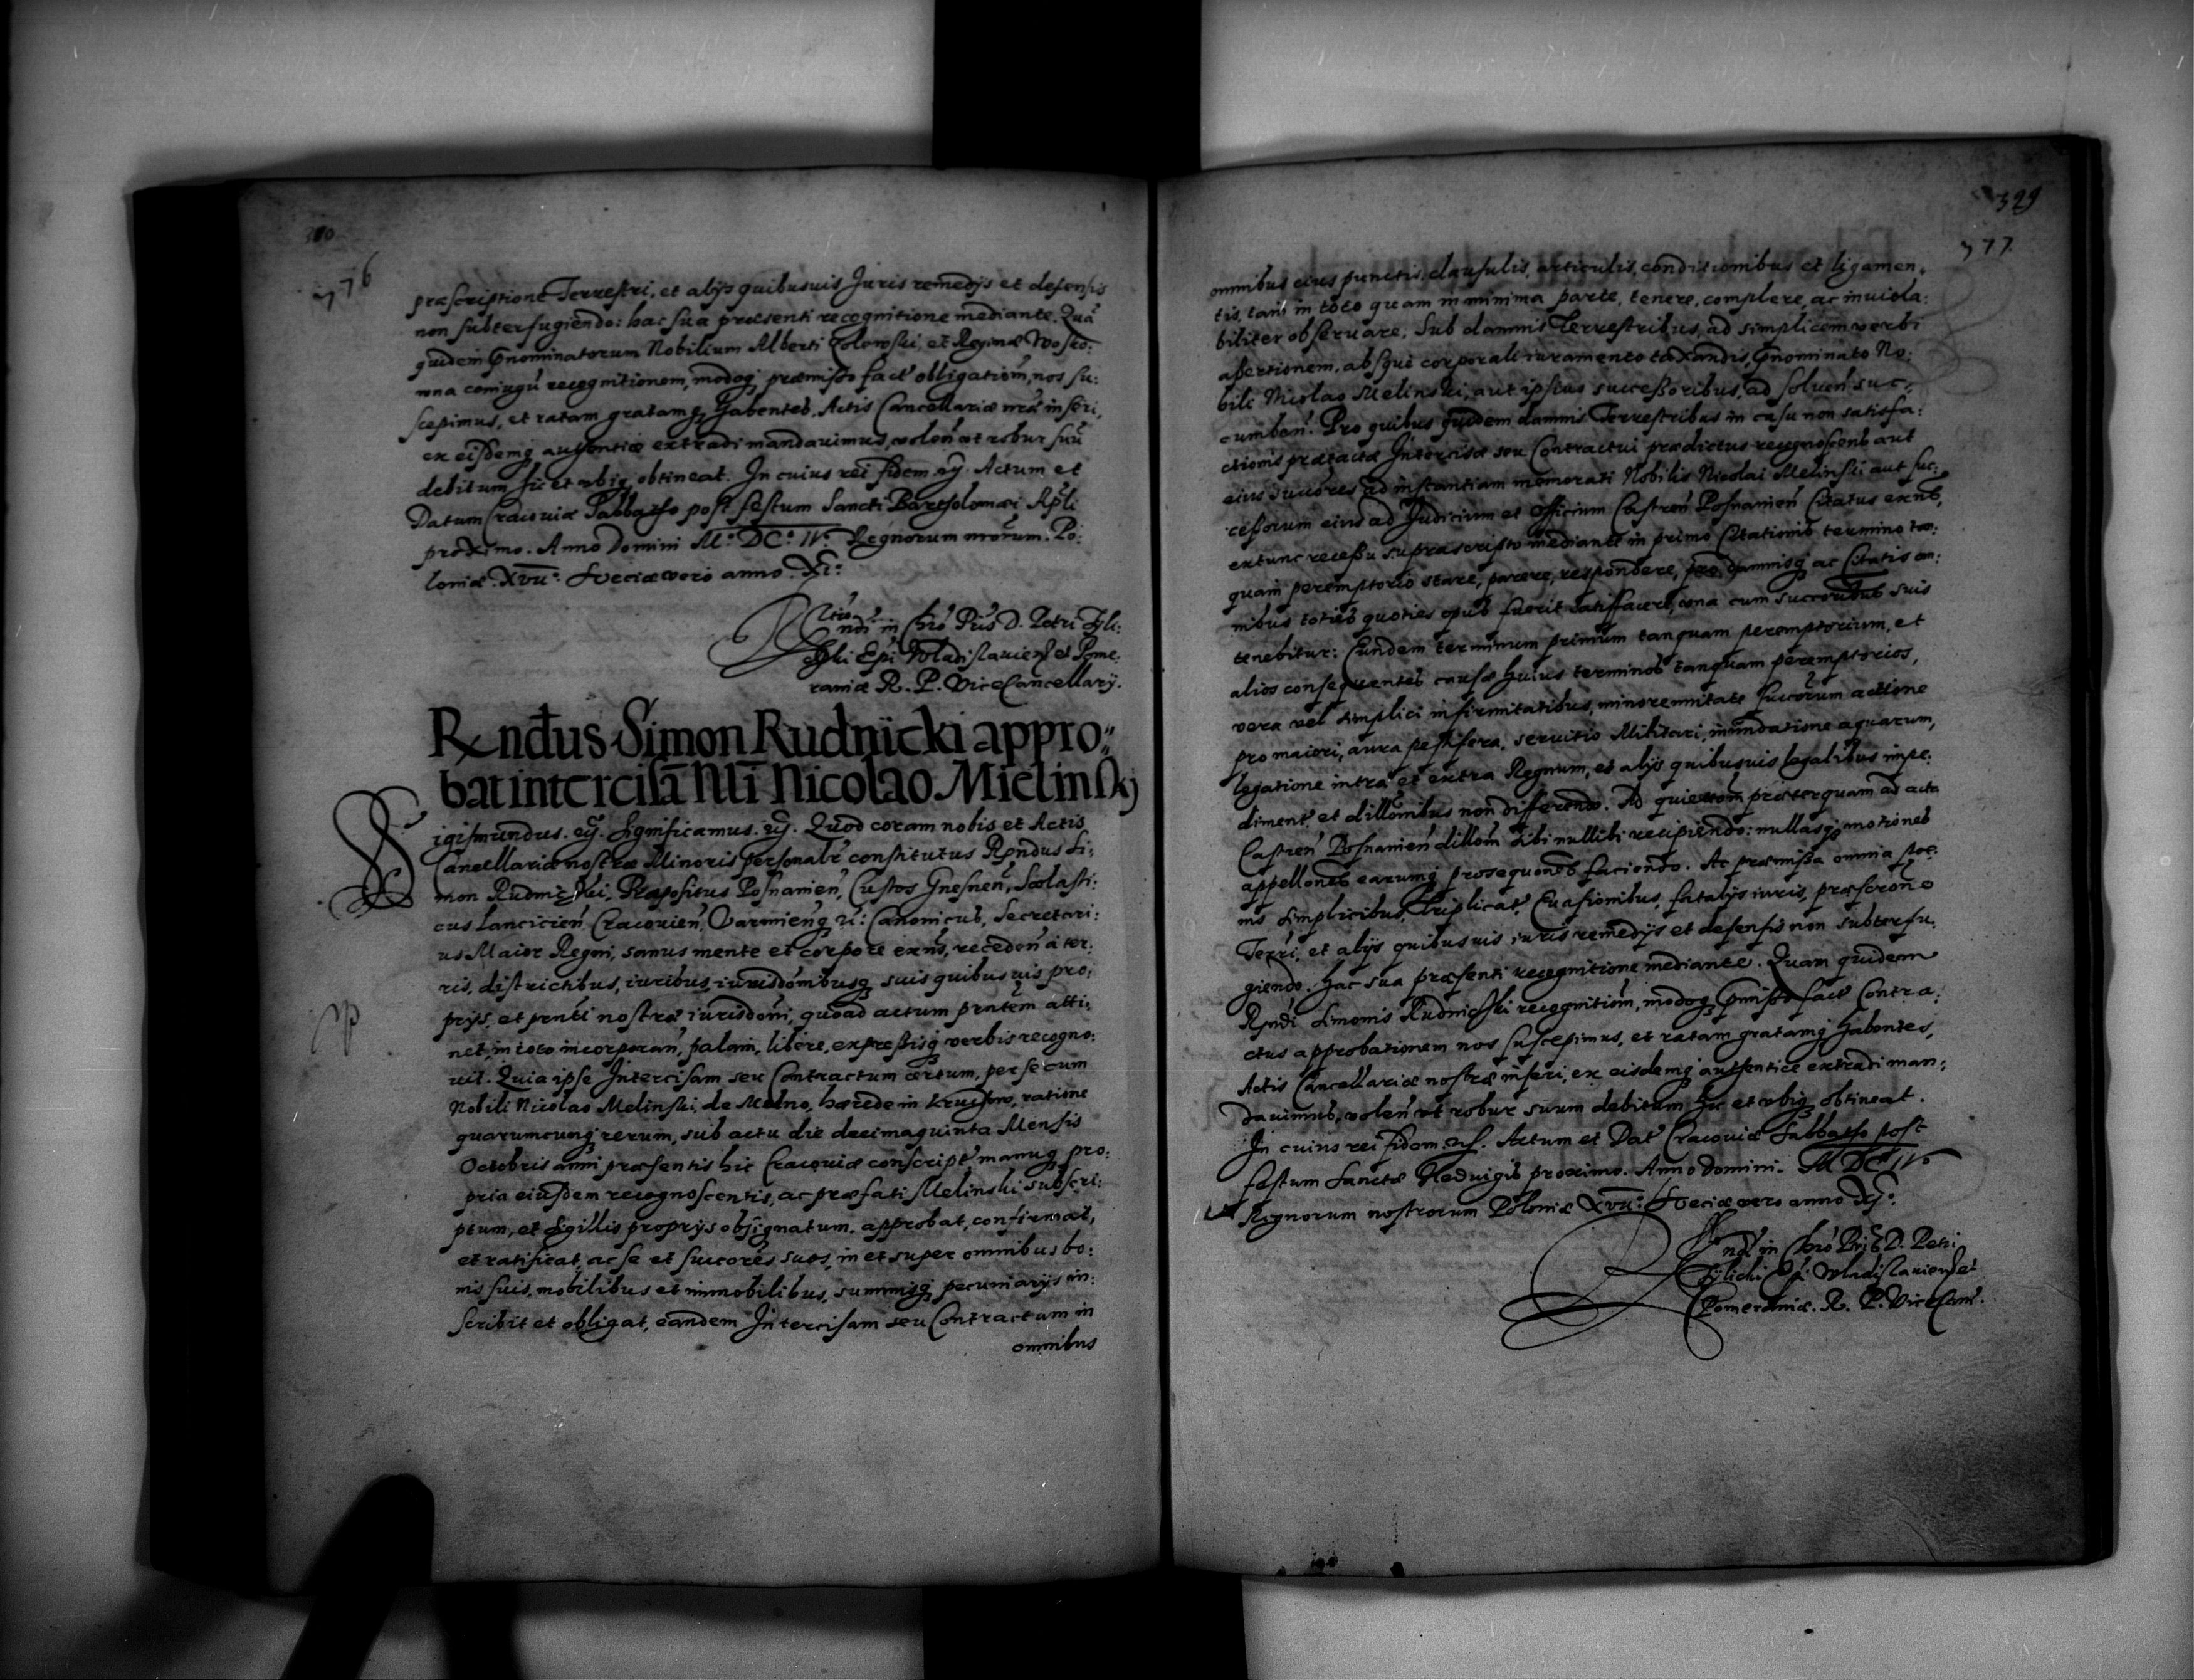 380
776
præscriptione Terrestri, et alijs quibusuis Juris remedijs et defensis
non subterfugiendo: hac sua præsenti recognitione mediante. Quã
quidem Prænominatorum Nobilium Alberti et Reginæ
coniugũ recognitionem, modoq; præmisso fact obligatiom, nos su:
scepimus, et ratam gratamq; habentes, Actis Cancellariæ nræ inseri,
ex eisdemq; authenticæ extradi mandauimus, volen ut robur suũ
debitum hic et vbiq; obtineat. In cuius rei fidem Actum et
Datum Cracouiæ Sabbatho post festum Sancti Bartholomæi Apli
proximo. Anno Domini M. DC. IV. Regnorum nrorum. Po:
loniæ. XVII. Sueciæ vero anno. XI.
Rndi in Chro Pris D. Petri Tyli:
cki Epi Wladislauien et Pome:
raniæ R. P. ViceCancellarij.
Rndus Simon Rudnicki appro:
bat intercisã Nli Nicolao Mielinskj
Sigismundus. Significamus. Quod coram nobis et Actis
Cancellariæ nostræ Minoris personalr constitutus Rndus Si:
mon Rudnicki, Præpositus Posnanien, Custos Gnesnen, Scolasti:
cus Lancicien, Cracouien, Varmienq Canonicus, Secretari:
us Maior Regni, sanus mente et corpore exns, receden à ter:
ris, districtibus, iuribus, iurisdõnibusq suis quibusuis pro:
prijs, et prnti nostræ iurisdõni, quoad actum prntem atti:
net, in toto incorporan, palam, libere, expressisq verbis recogno:
uit. Quia ipse Intercisam seu Contractum certum, per se cum
Nobili Nicolao Melinski, de Melno, hærede in ratione
quarumcunq rerum, sub actu die decimaquinta Mensis
Octobris anni præsentis hic Cracouiæ conscript manuq pro:
pria eiusdem recognoscentis, ac præfati Melinski subscri:
ptum, et Sigillis proprijs obsignatum. approbat, confirmat,
et ratificat, ac se et succores suos, in et super omnibus bo:
nis suis, mobilibus et immobilibus, summisq pecuniarijs in:
scribit et obligat, eandem Intercisam seu Contractum in
omnibus
329
777
omnibus eius punctis, clausulis, articulis, conditionibus et ligamen:
tis, tam in toto quam in minima parte, tenere, complere, ac inuiola:
biliter obseruare. Sub damnis Terrestribus, ad simplicem verbi
assertionem, absque corporali iuramento taxandis, Prænominato No:
bili Nicolao Melinski, aut ipsius successoribus, ad soluen suc:
cumben. Pro quibus quidem damnis Terrestribus in casu non satisfa:
ctionis prætactæ Intercisæ seu Contractui prædictus recognoscens aut
eius succores ad instantiam memorati Nobilis Nicolai Melinski aut suc:
cessorum eius ad Judicium et Officium Castren Posnanien Citatus exns,
extunc recessu suprascripto mediante in primo Citationis termino tan:
quam peremptorio stare, parere, respondere, pro damnisq ac Citatis om:
nibus toties quoties opus fuerit satisfacere, vna cum succoribus suis
tenebitur: Eundem terminum primum tanquam peremptorium, et
alios consequentes causæ huius terminos tanquam peremptorios,
vera vel simplici infirmitatibus, minorennitate succorum actione
pro maiori, aura pestifera, seruitio Militari, inundatione aquarum,
legatione intra et extra Regnum, et alijs quibusuis legalibus impe:
diment et dillonibus non differendo. Ad quietom præterquam ad acta
Castren Posnanien dillom sibi nullibi recipiendo: nullasq motiones
appellones earumq prosequones faciendo. Ac præmissa omnia
simplicibus, Triplicat, Euasionibus, fatalijs iuris, præscrone
Terri, et alijs quibusuis iuris remedijs et defensis non subterfu:
giendo. hac sua præsenti recognitione mediante. Quam quidem
Rndi Simonis Rudnicki recognitiom, modoq Præmisso fact Contra:
ctus approbationem nos suscepimus, et ratam gratamq habentes,
Actis Cancellariæ nostræ inseri, ex eisdemq authentice extradi man:
dauimus, volen ut robur suum debitum hic et vbiq obtineat.
In cuius rei fidem. Actum et Dat Cracouiæ Sabbatho post
festum Sanctæ Heduigis proximo. Anno Domini. M DC IV
Regnorum nostrorum Poloniæ XVII. Sueciæ vero anno XI.
Rndi in Chro Pris D. Petri
Tylicki Epi Wladislauien et
Pomeraniæ. R. P. ViceCanc.